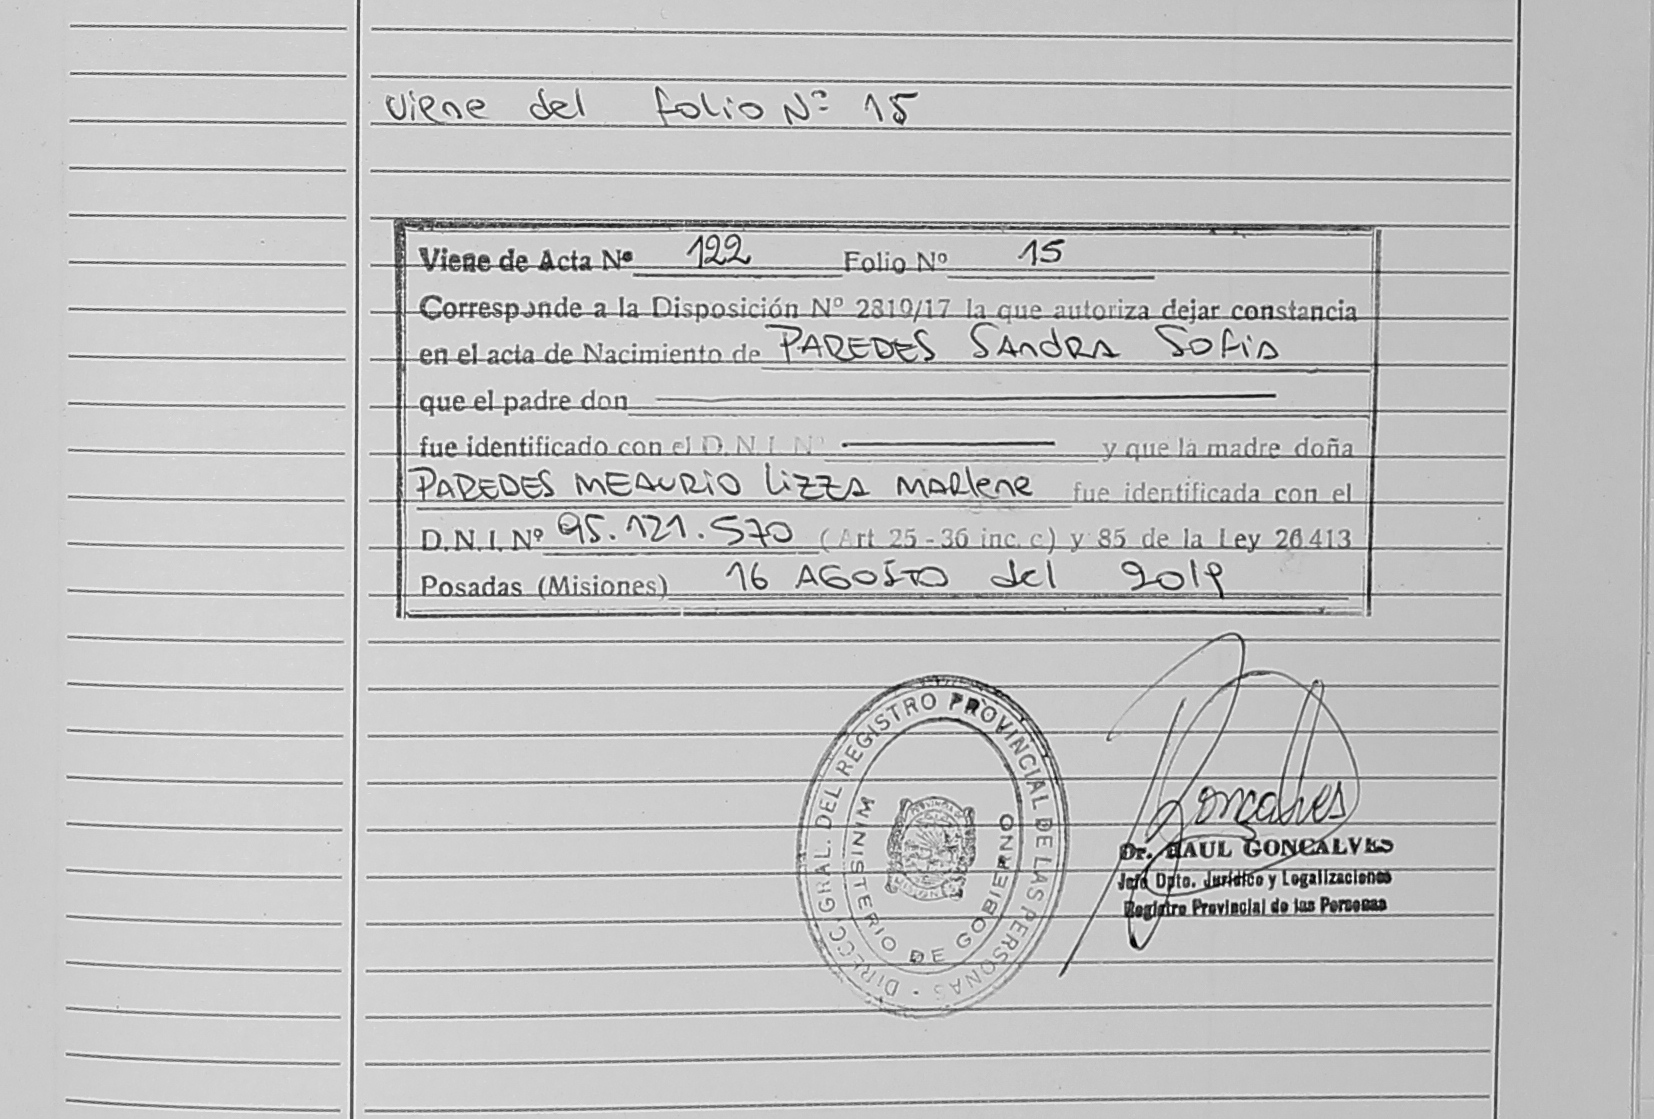 Viene del folio Nº 15
Viene de Acta Nº 122 Folio Nº 15
Corresponde a la Disposición Nº 2810/17 la que autoriza dejar constancia
en el acta de Nacimiento de PAREDES SANDRA SOFIA
que el padre don
fue identificado con el D.N.I. Nº y que la madre doña
PAREDES MEAURIO LIZZA MARlene fue identificada con el
D.N.I. Nº 95.121.570 (Art 25 - 36 inc. c) y 85 de la Ley 26.413
Posadas (Misiones) 16 AGOSTO del 2019
DIRECC. GRAL. DEL REGISTRO PROVINCIAL DE LAS PERSONAS
MINISTERIO DE GOBIERNO
PROVINCIA DE MISIONES
Gonçalves
Dr. RAUL GONCALVES
Jefe Dpto. Jurídico y Legalizaciones
Registro Provincial de las Personas